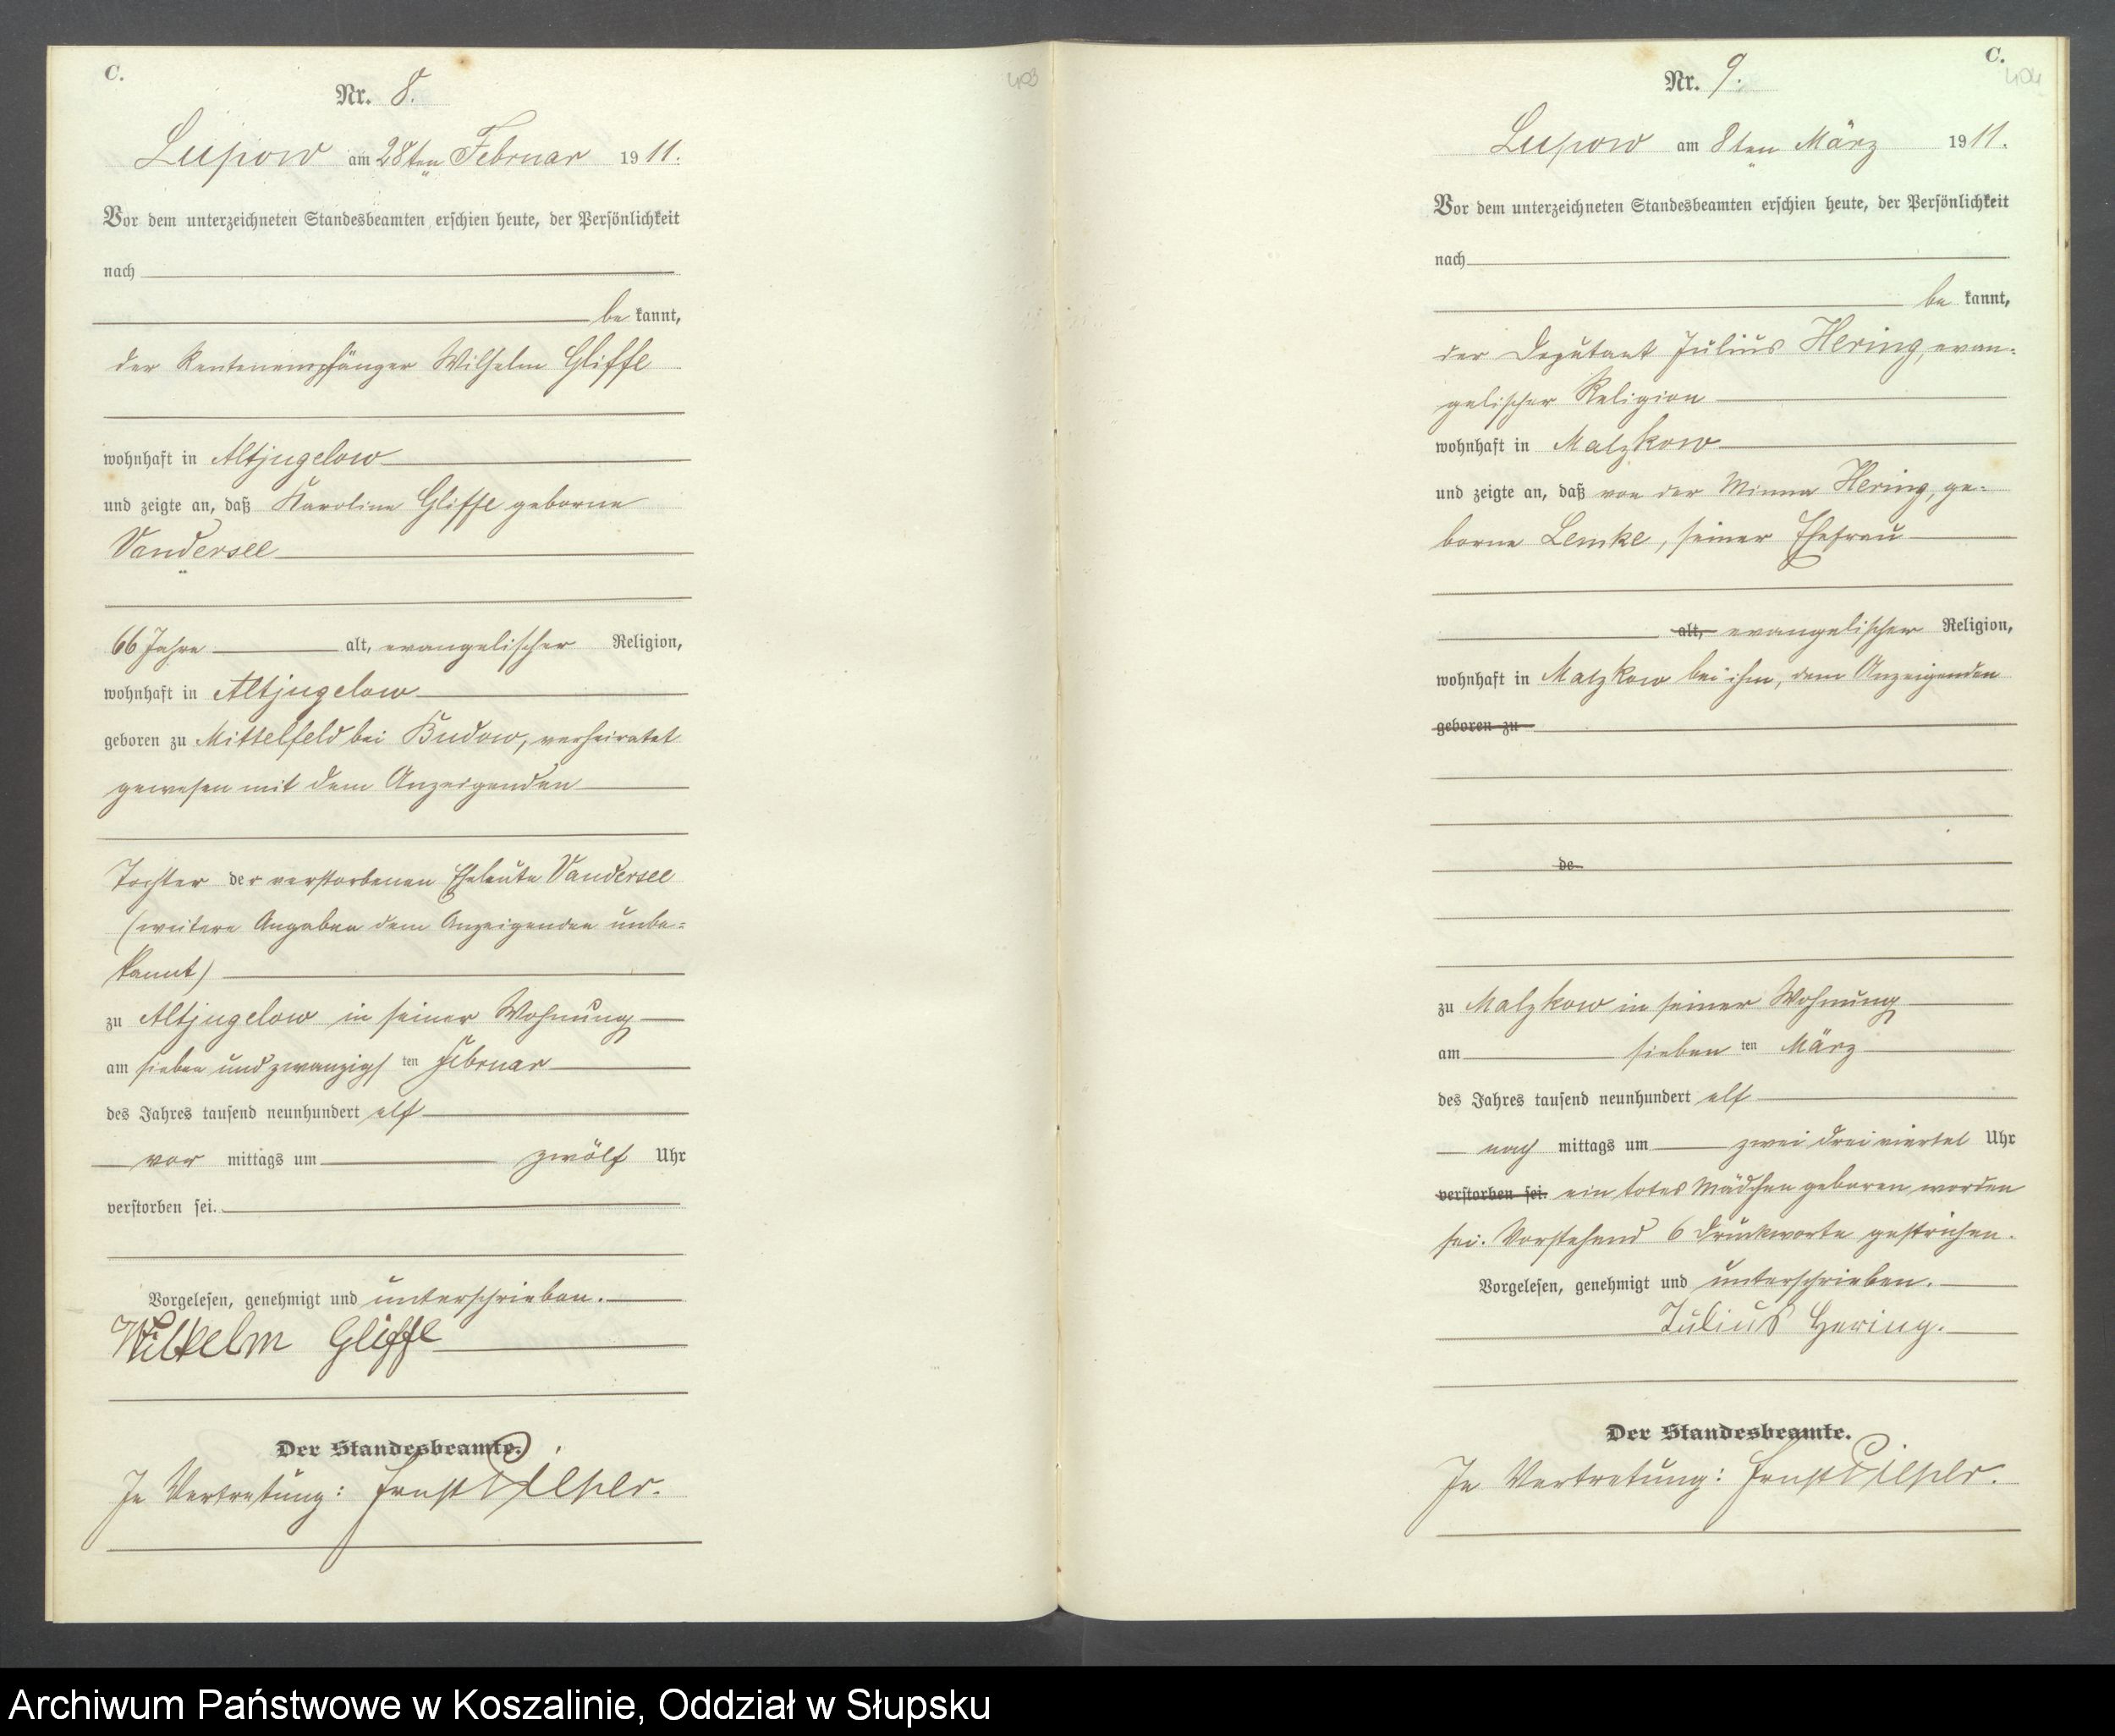 C.
403
Nr. 8.
Lupow am 28ten Februar 1911.
Vor dem unterzeichneten Standesbeamten erschien heute, der Persönlichkeit
nach
be kannt,
der Rentenempfänger Wilhelm Gliffe
wohnhaft in Altjugelow
und zeigte an, daß Karoline Gliffe geborne
Vandersee
66 Jahre alt, evangelischer Religion,
wohnhaft in Altjugelow
geboren zu Mittelfeld bei Budow, verheiratet
gewesen mit dem Anzeigenden
Tochter der verstorbenen Eheleute Vandersee
(weitere Angaben dem Anzeigenden unbe=
kannt)
zu Altjugelow in seiner Wohnung
am sieben und zwanzigsten Februar
des Jahres tausend neunhundert elf
vor mittags um zwölf Uhr
verstorben sei.
Vorgelesen, genehmigt und unterschrieben.
Wilhelm Gliffe
Der Standesbeamte.
In Vertretung: Ernst Piesler.
C.
404
Nr. 9.
Lupow am 8ten März 1911.
Vor dem unterzeichneten Standesbeamten erschien heute, der Persönlichkeit
nach
be kannt,
der Deputant Julius Hering, evan=
gelischer Religion
wohnhaft in Malzkow
und zeigte an, daß von der Minna Hering, ge=
borne Lemke, seiner Ehefrau
alt, evangelischer Religion,
wohnhaft in Malzkow bei ihm, dem Anzeigenden
geboren zu
de
zu Malzkow in seiner Wohnung
am sieben ten März
des Jahres tausend neunhundert elf
nach mittags um zwei dreiviertel Uhr
verstorben sei. ein totes Mädchen geboren worden
sei. Vorstehend 6 Druckworte gestrichen.
Vorgelesen, genehmigt und unterschrieben.
Julius Hering.
Der Standesbeamte.
In Vertretung: Ernst Piesler.
Archiwum Państwowe w Koszalinie, Oddział w Słupsku